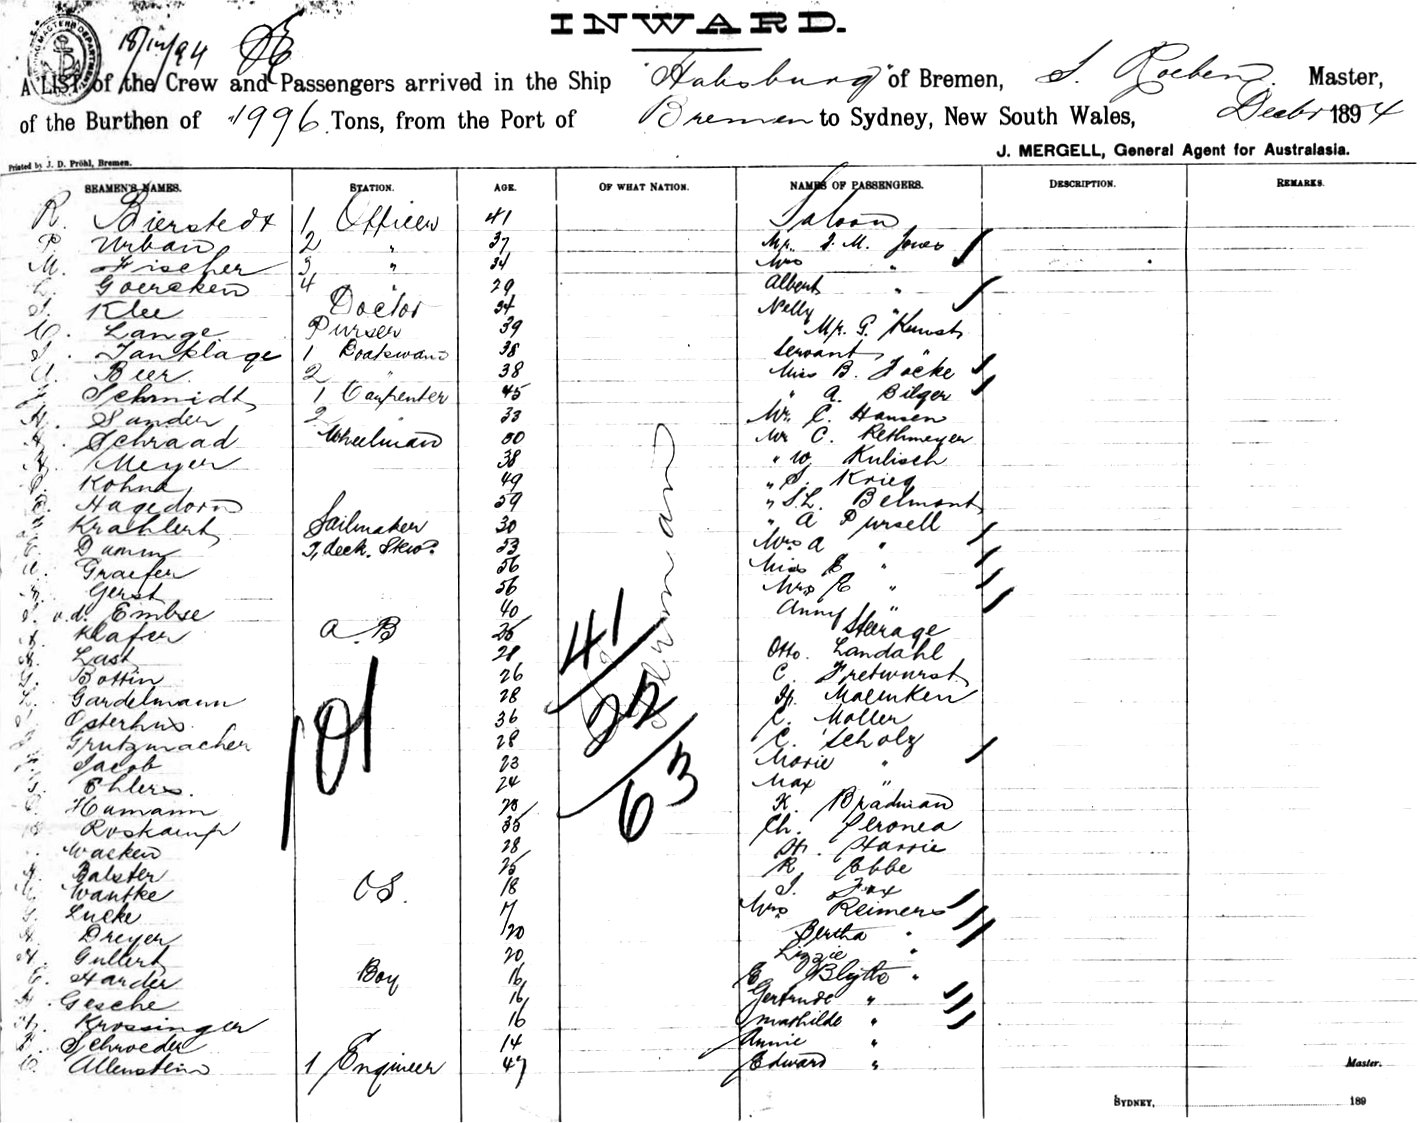 INWARD.
18/12/94
A LIST of the Crew and Passengers arrived in the Ship "Habsburg" of Bremen, Master,
of the Burthen of 1996 Tons, from the Port of Bremen to Sydney, New South Wales, Decbr 1894
J. MERGELL, General Agent for Australasia.
Printed by J. D. Pröhl, Bremen.
SEAMEN'S NAMES. STATION. AGE. OF WHAT NATION. NAMES OF PASSENGERS. DESCRIPTION. REMARKS.
R. Bierstedt 1 Officer 41 Saloon
P. Urban 2 " 37 Mr. J. M. Jones
M. Fischer 3 " 34 Mrs "
Goercken 4 " 29 Albert "
Klee Doctor 34 Nelly "
Lange Purser 39 Mr. G. Kunst
Tanklage 1 Boatswain 38 Servant "
Beer 2 " 38 Miss B. Focke
Schmidt 1 Carpenter 45 " A. Bilger
Sander 2 33 Mr. C. Hansen
Schraad Wheelman 30 Mr C. Rethmeyer
Meyer 38 " W. Kulisch
49 " S. Krieg
Hagedorn 59 " S. L. Belmont
Krahlert Sailmaker 30 " A Pursell
Damm 2, deck. Stew. 53 Mrs A "
Graefer 56 Miss E "
Gerst 56 Mrs E "
v. d. Embse 40 Anny "
Klafer A. B 25 Steerage
Last 28 Otto. Landahl
Bottin 26 C. Fretwurst
Gardelmann 28 Malmken
Osterhus 36 C. Moller
Grutzmacher 28 C. Scholz
Jacob 23 Marie "
Ehlers. 24 Max "
Humann K. Bradman
Roskamp 35 Ch. Geronea
Wacken 28 St. Harrie
Balster 25 R. Ebbe
Wantke O S. 18 J. Fox
Lucke 17 Mrs Reimers
Dreyer 20 Bertha "
Gullert 20 Lizzie "
E. Harder Boy 16 E Blytt "
Gesche 16 Gertrude "
Krossinger 16 Mathilde "
Schroeder 14 Annie "
Allenstein 1 Engineer 47 Edward "
German
41
22
63
101
Master.
SYDNEY, 189